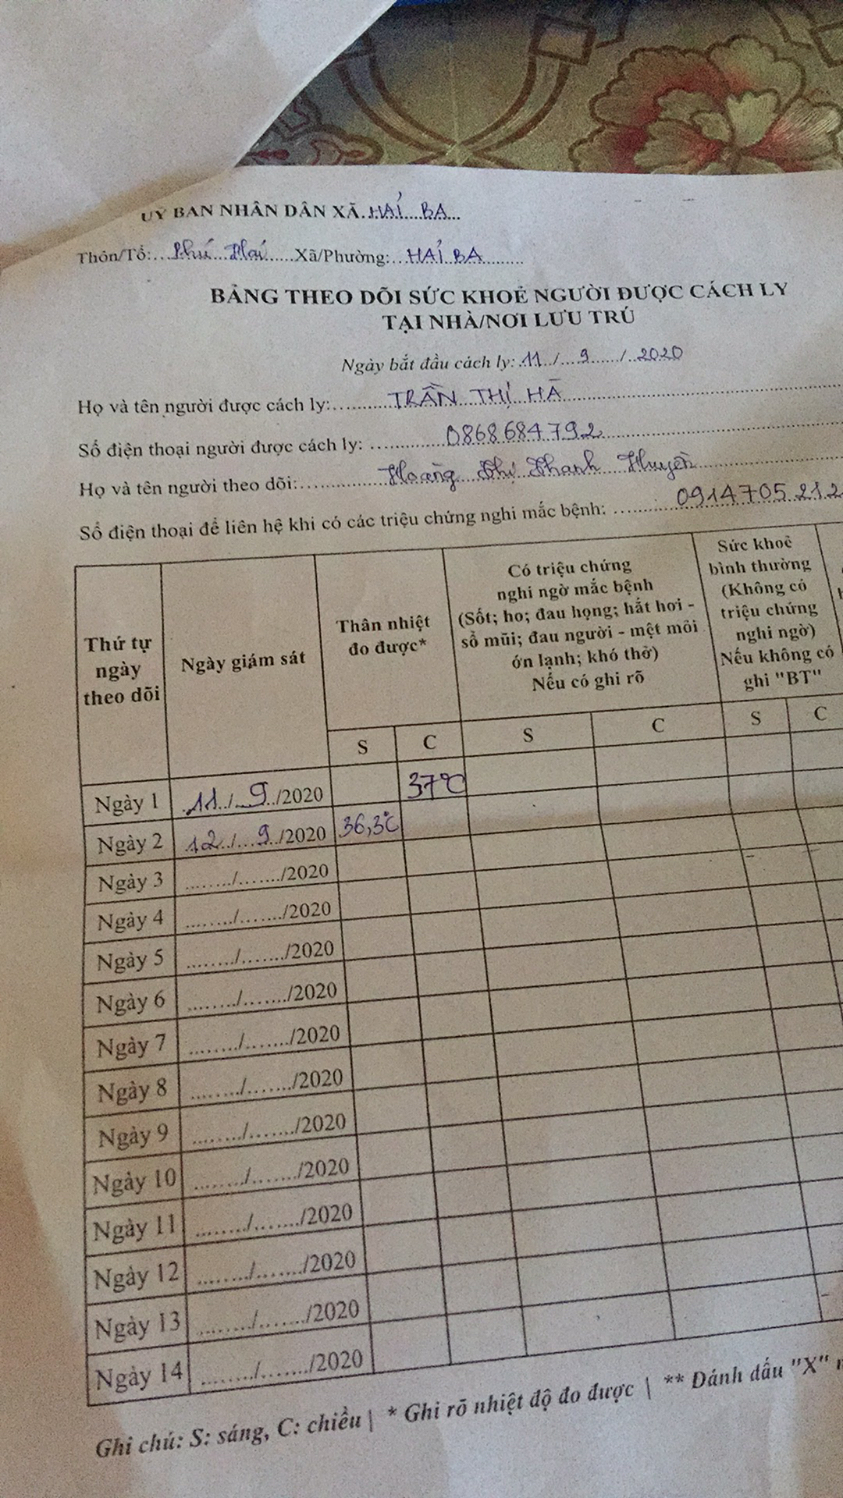 UỶ BAN NHÂN DÂN XÃ. HẢI BA
Thôn/Tổ: Phú Hải Xã/Phường: HẢI BA
BẢNG THEO DÕI SỨC KHOẺ NGƯỜI ĐƯỢC CÁCH LY
TẠI NHÀ/NƠI LƯU TRÚ
Ngày bắt đầu cách ly: 11/9/2020
Họ và tên người được cách ly: TRẦN THỊ HÀ
Số điện thoại người được cách ly: 0868684792
Họ và tên người theo dõi: Hoàng Thị Thanh Huyền
Số điện thoại để liên hệ khi có các triệu chứng nghi mắc bệnh: 0914705212
Thứ tự ngày theo dõi
Ngày giám sát
Thân nhiệt đo được*
Có triệu chứng
nghi ngờ mắc bệnh
(Sốt; ho; đau họng; hắt hơi -
sổ mũi; đau người - mệt mỏi
ớn lạnh; khó thở)
Nếu có ghi rõ
Sức khoẻ
bình thường
(Không có
triệu chứng
nghi ngờ)
Nếu không có
ghi "BT"
S C S C S C
Ngày 1 11/9/2020 37°C
Ngày 2 12/9/2020 36,3°C
Ngày 3 ......../......./2020
Ngày 4 ......../......./2020
Ngày 5 ......../......./2020
Ngày 6 ......../......./2020
Ngày 7 ......../......./2020
Ngày 8 ......../......./2020
Ngày 9 ......../......./2020
Ngày 10 ......../......./2020
Ngày 11 ......../......./2020
Ngày 12 ......../......./2020
Ngày 13 ......../......./2020
Ngày 14 ......../......./2020
Ghi chú: S: sáng, C: chiều | * Ghi rõ nhiệt độ đo được | ** Đánh dấu "X"